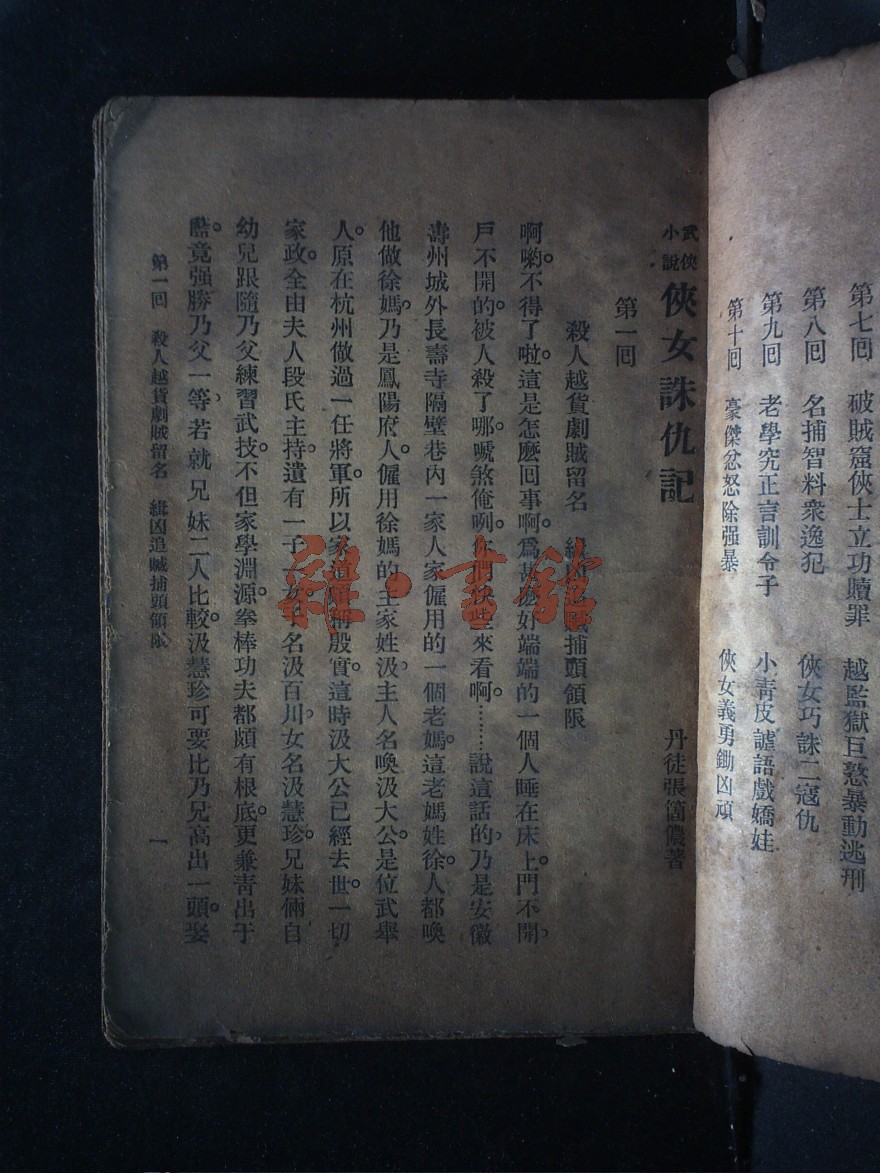 第七回　破賊窟俠士立功贖罪　越監獄巨憝暴動逃刑
第八回　名捕智料衆逸犯　俠女巧誅二寇仇
第九回　老學究正言訓令子　小靑皮謔語戲嬌娃
第十回　豪傑忿怒除强暴　俠女義勇鋤凶頑
武俠小說　俠女誅仇記
丹徒張箇儂著
第一回
殺人越貨劇賊留名　緝凶追贓捕頭領限
啊喲。不得了啦。這是怎麽回事啊。爲甚麽好端端的一個人睡在床上。門不開，
戶不開的。被人殺了哪。唬煞俺咧。你們快些來看啊。………說這話的，乃是安徽
壽州城外長壽寺隔壁巷內一家人家僱用的一個老媽。這老媽姓徐。人都喚
他做徐媽。乃是鳳陽府人。僱用徐媽的主家姓汲，主人名喚汲大公。是位武舉
人。原在杭州做過一任將軍。所以家道頗稱殷實。這時汲大公已經去世。一切
家政。全由夫人段氏主持。遺有一子一女。子名汲百川，女名汲慧珍。兄妹倆自
幼兒跟隨乃父練習武技。不但家學淵源。拳棒功夫都頗有根底。更兼靑出于
藍。竟强勝乃父一等。若就兄妹二人比較。汲慧珍可要比乃兄高出一頭。娶
第一回　殺人越貨劇賊留名　緝凶追贓捕頭領限
一
雜·書館